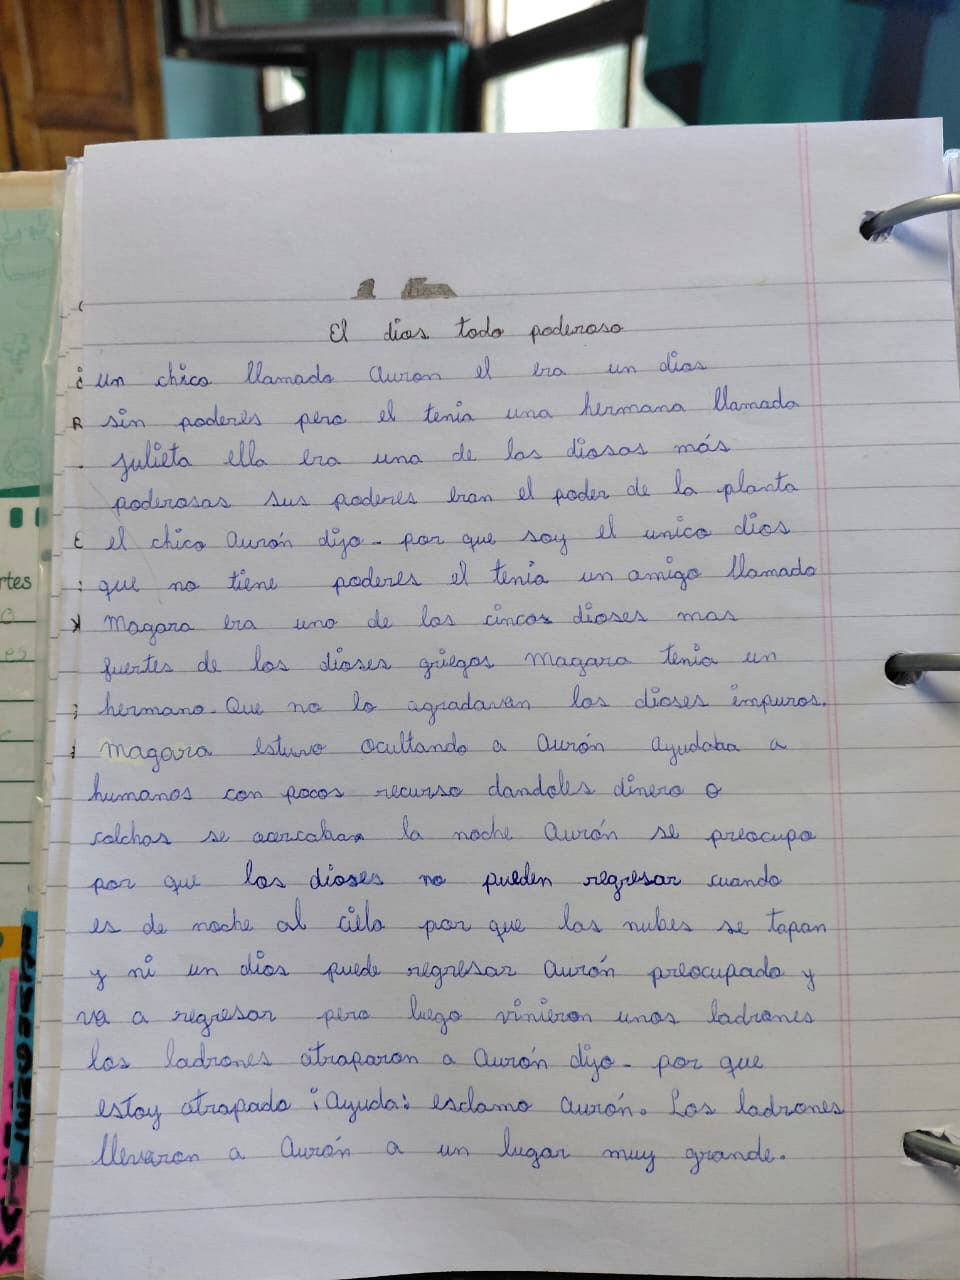 El dios todo poderoso
un chico llamado auron el era un dios
sin poderes pero el tenia una hermana llamada
julieta ella era una de las diosas más
poderosas sus poderes eran el poder de la planta
el chico aurón dijo - por que soy el unico dios
que no tiene poderes el tenia un amigo llamado
magara era uno de los cincos dioses mas
fuertes de los dioses griegos magara tenia un
hermano. Que no lo agradavan los dioses impuros.
magara estuvo ocultando a aurón ayudaba a
humanos con pocos recurso dandoles dinero o
colchas se acercaba la noche aurón se preocupa
por que los dioses no pueden regresar cuando
es de noche al cielo por que las nubes se tapan
y ni un dios puede regresar aurón preocupado y
va a regresar pero luego vinieron unos ladrones
los ladrones atraparon a aurón dijo - por que
estoy atrapado ¡ayuda! esclamo aurón. Los ladrones
llevaron a aurón a un lugar muy grande.
rtes